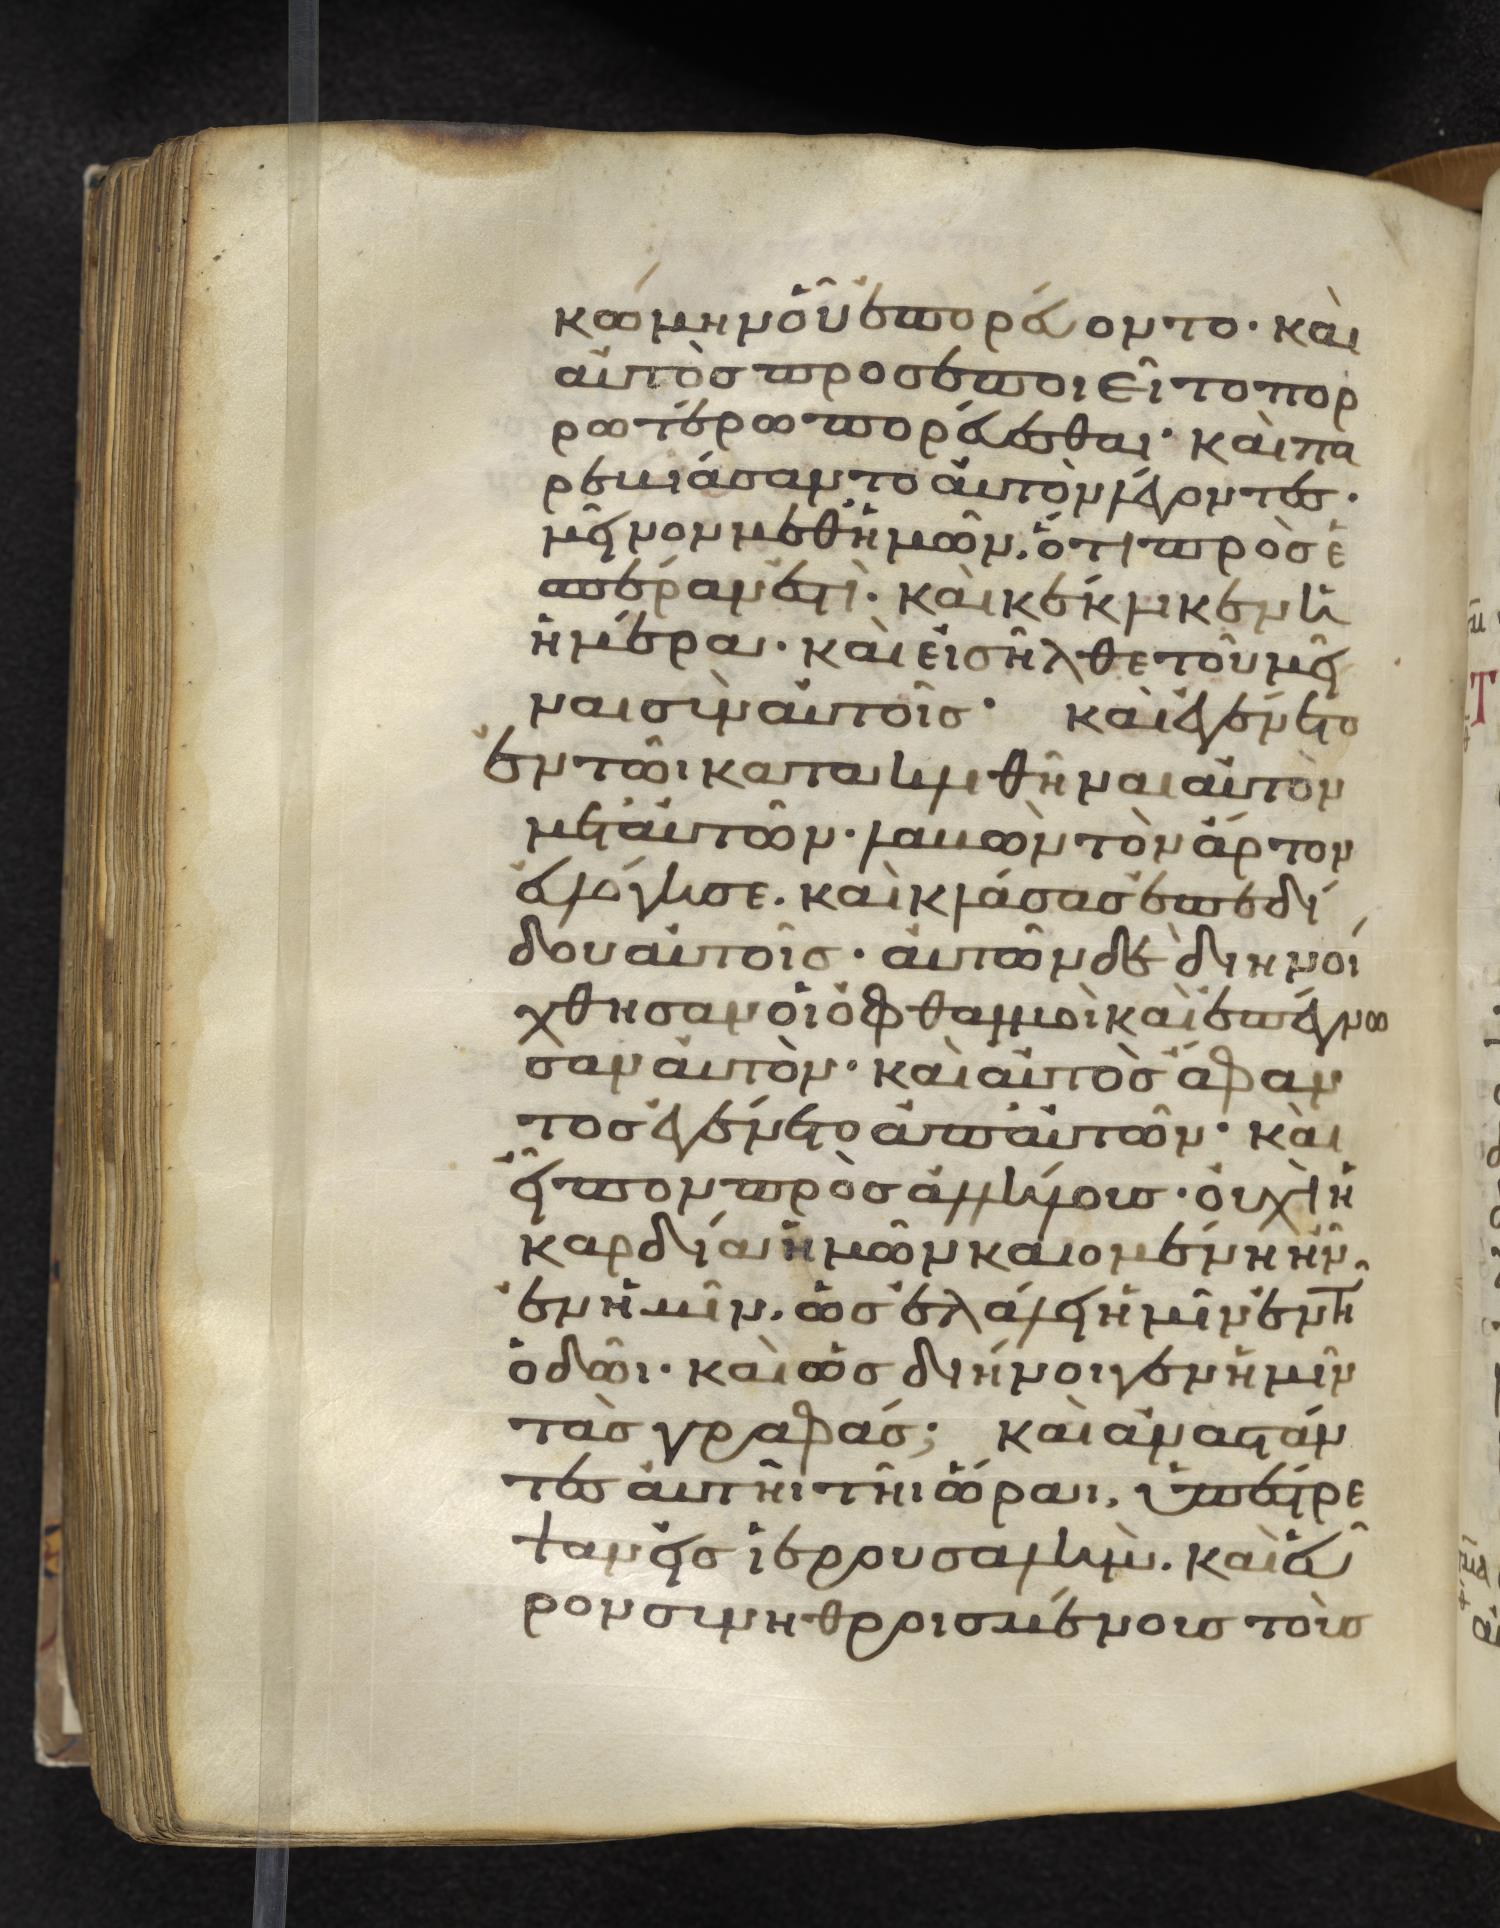 κώμην οὗ ἐπορεύοντο· καὶ
αὐτὸς προσεποιεῖτο πορ
ρωτέρω πορεύεσθαι· καὶ πα
ρεβιάσαντο αὐτὸν λέγοντες·
μεῖνον μεθ' ἡμῶν. ὅτι πρὸς ἑ
σπέραν ἐστὶ· καὶ κέκλικεν ἡ
ἡμέρα· καὶ εἰσῆλθε τοῦ μεῖ
ναι σὺν αὐτοῖς· καὶ ἐγένετο
ἐν τῶι κατακλιθῆναι αὐτὸν
μετ' αὐτῶν· λαβὼν τὸν ἄρτον
εὐλόγησε. καὶ κλάσας ἐπεδί
δου αὐτοῖς· αὐτῶν δὲ διηνοί
χθησαν οἱ ὀφθαλμοὶ καὶ ἐπέγνω
σαν αὐτὸν· καὶ αὐτὸς ἄφαν
τος ἐγένετο ἀπ' αὐτῶν· καὶ
εἶπον πρὸς ἀλλήλους· οὐχὶ ἡ
καρδία ἡμῶν καιομένη ἦν,
ἐν ἡμῖν. ὡς ἐλάλει ἡμῖν ἐν τῆ
ὁδῶι· καὶ ὡς διήνοιγεν ἡμῖν
τὰς γραφάς; καὶ ἀναστάν
τες αὐτῆι τῆι ὥραι, ὑπέστρε
ψαν εἰς ἱερουσαλὴμ. καὶ εὗ
ρον συνηθροισμένους τοὺς